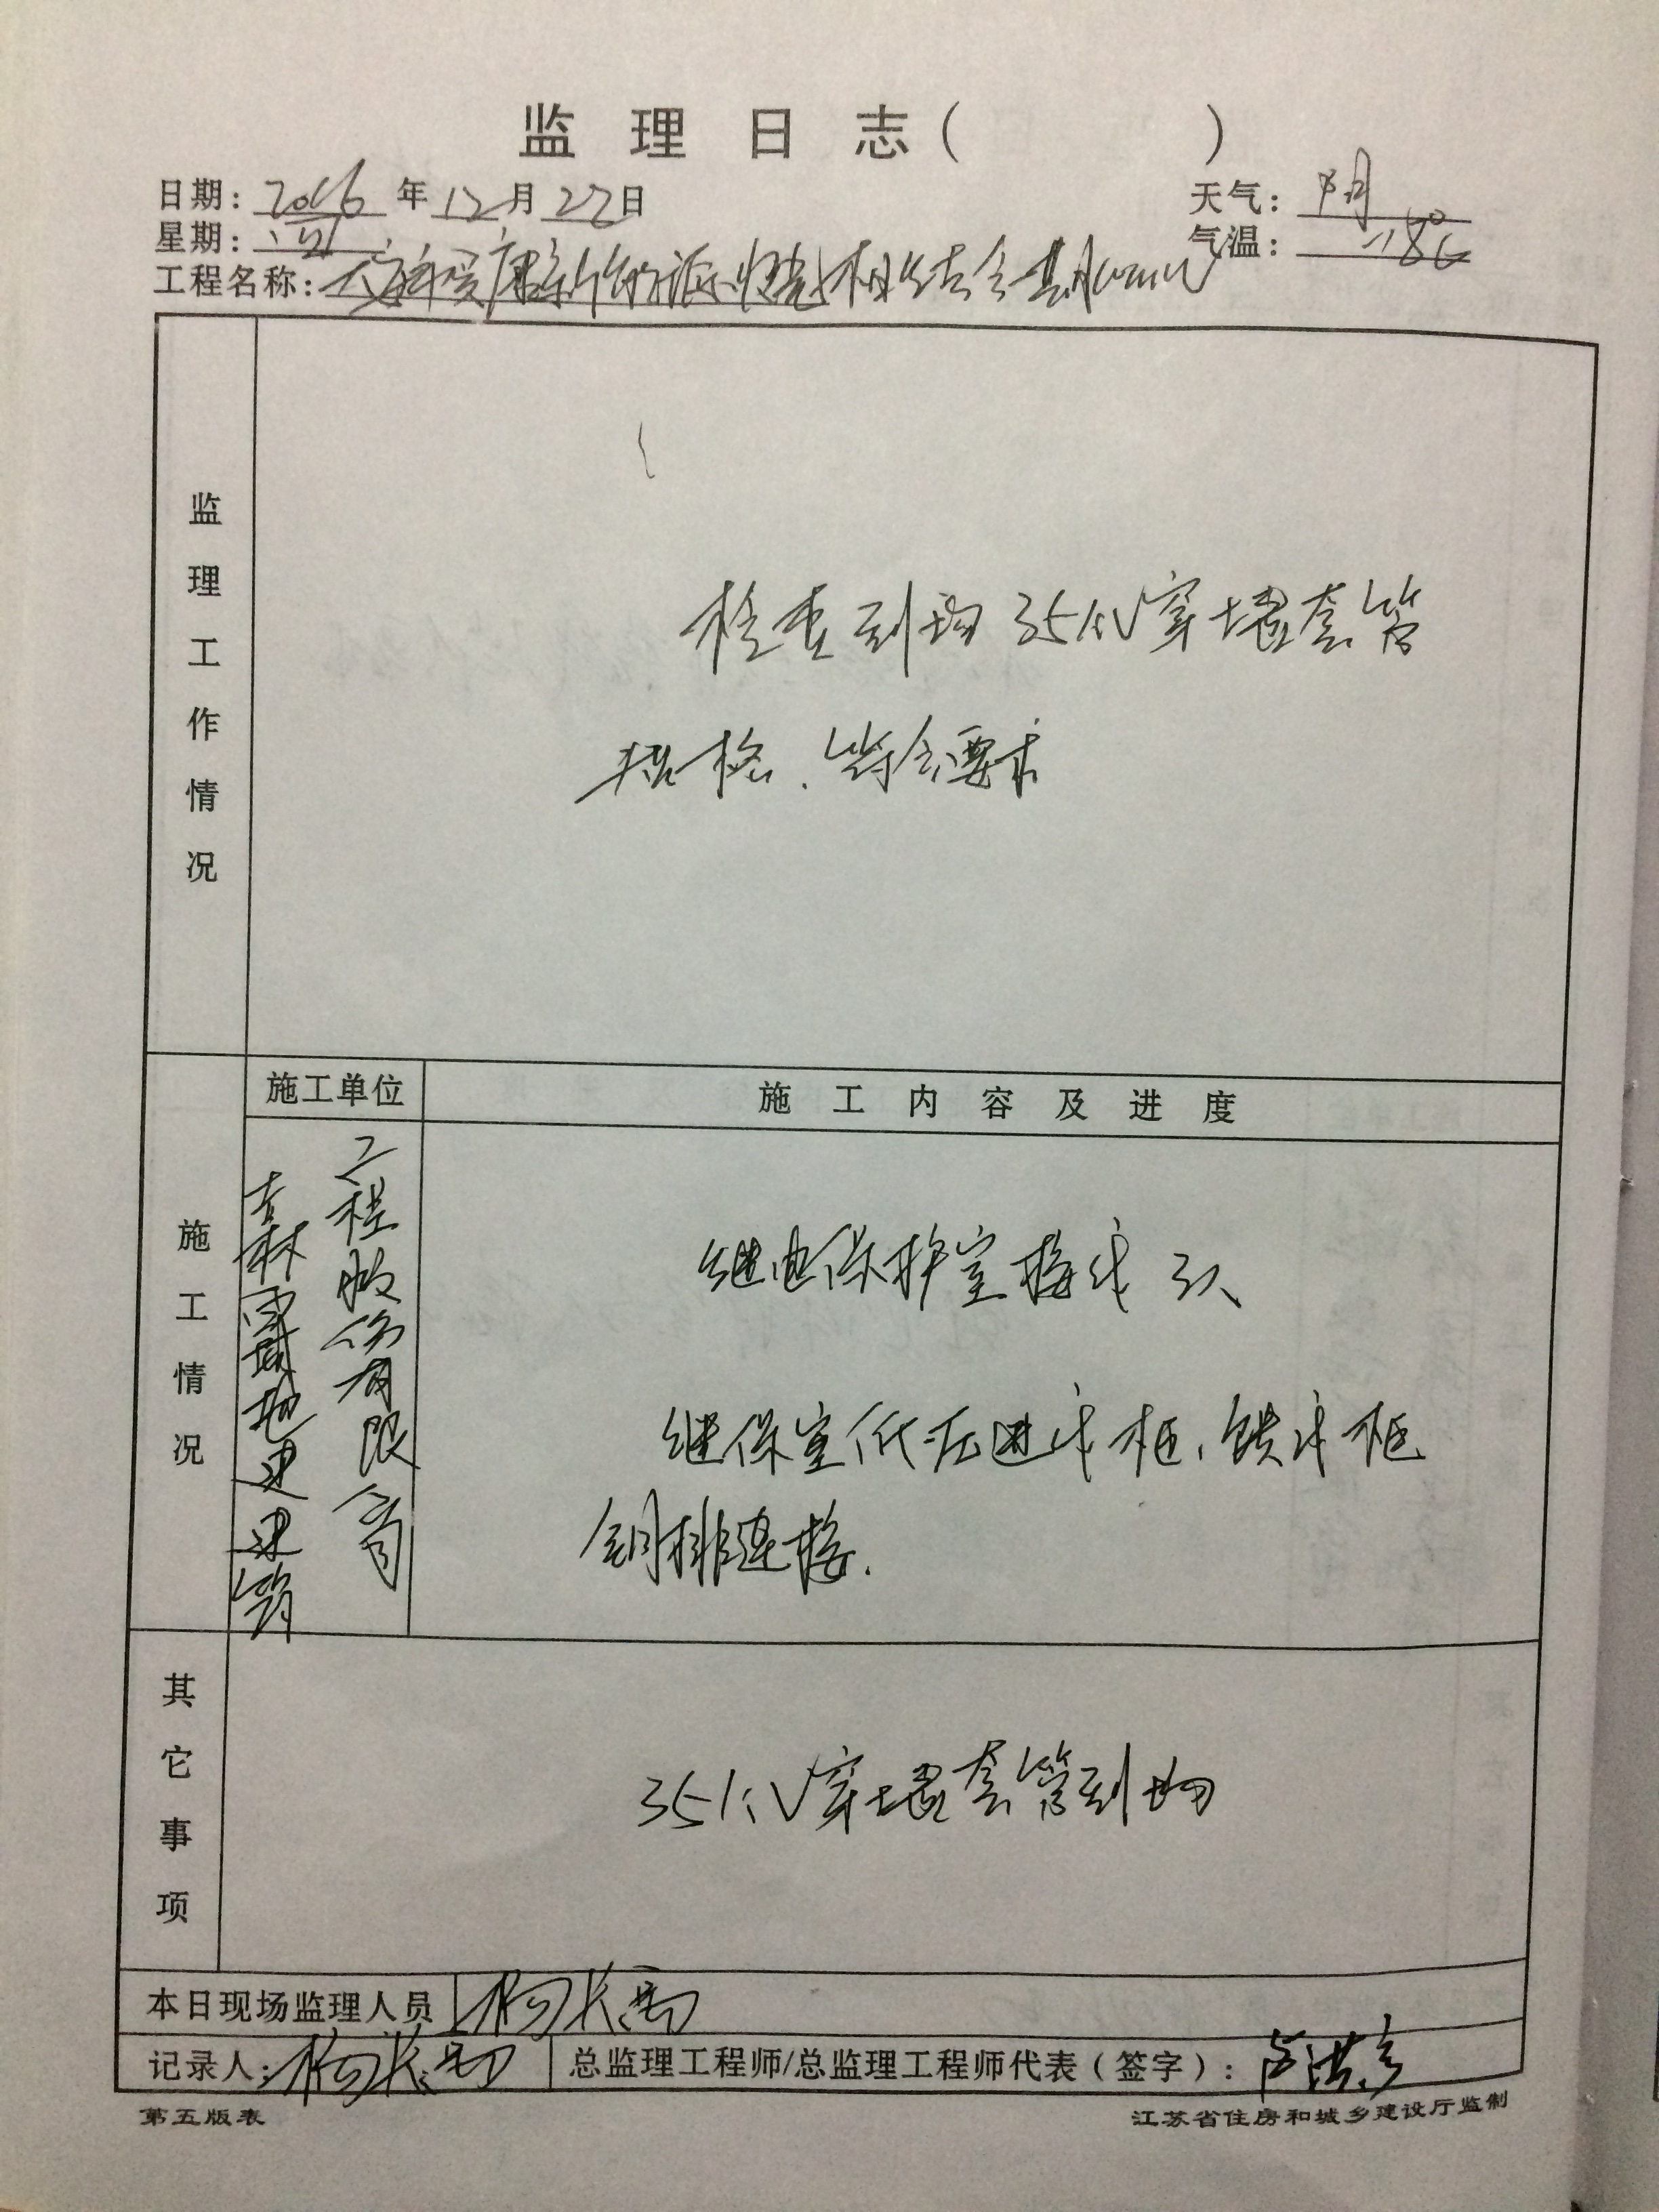 监理日志( )
日期: 2016 年 12 月 27 日
天气: 阴
星期: 二
气温: -18℃
工程名称:
监理工作情况
检查到场35kV穿墙套管
规格、符合要求
施工情况
施工单位
施工内容及进度
吉林
建筑
工程股份有限公司
继电保护室接线 3人
继保室低压进线柜、馈线柜
铜排连接.
其它事项
35kV穿墙套管到场
本日现场监理人员
记录人:
总监理工程师/总监理工程师代表(签字):
第五版表
江苏省住房和城乡建设厅监制